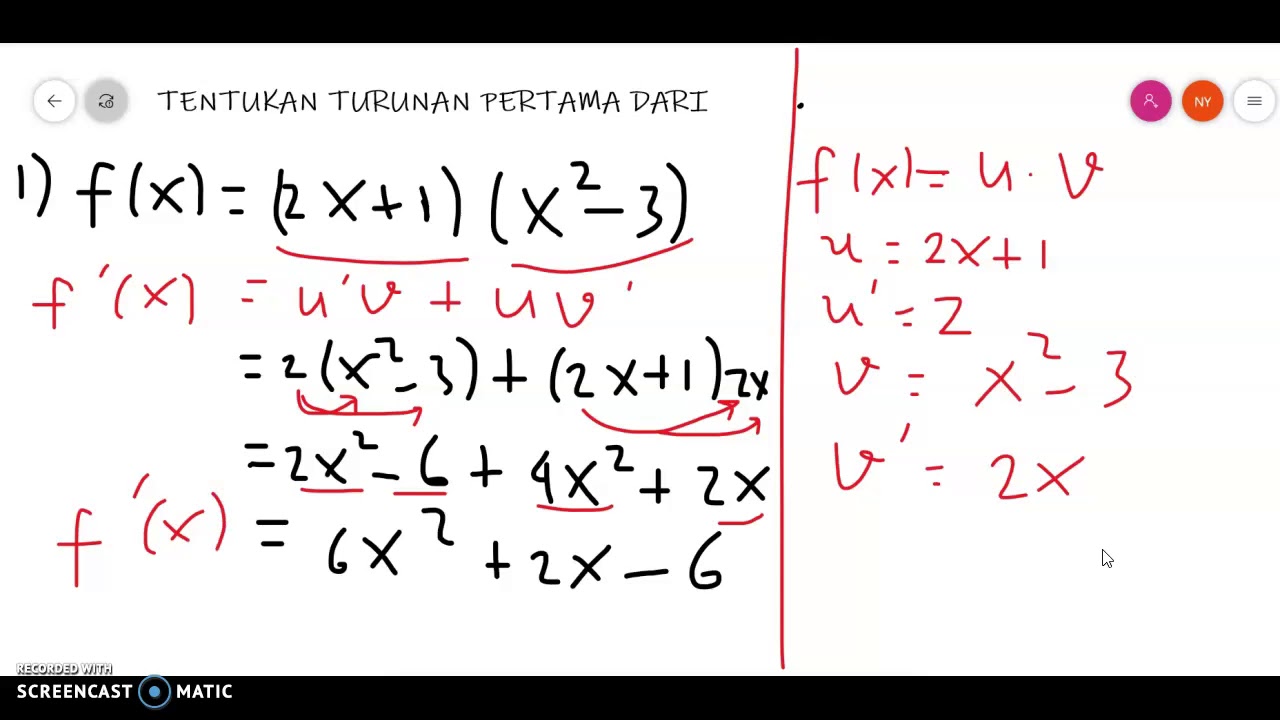 TENTUKAN TURUNAN PERTAMA DARI
.
NY
1) f(x) = (2x+1) (x²-3)
f'(x) = u'v + uv'
= 2(x²-3) + (2x+1)2x
= 2x² - 6 + 4x² + 2x
f'(x) = 6x² + 2x - 6
f(x) = u . v
u = 2x+1
u' = 2
v = x² - 3
v' = 2x
RECORDED WITH
SCREENCAST MATIC